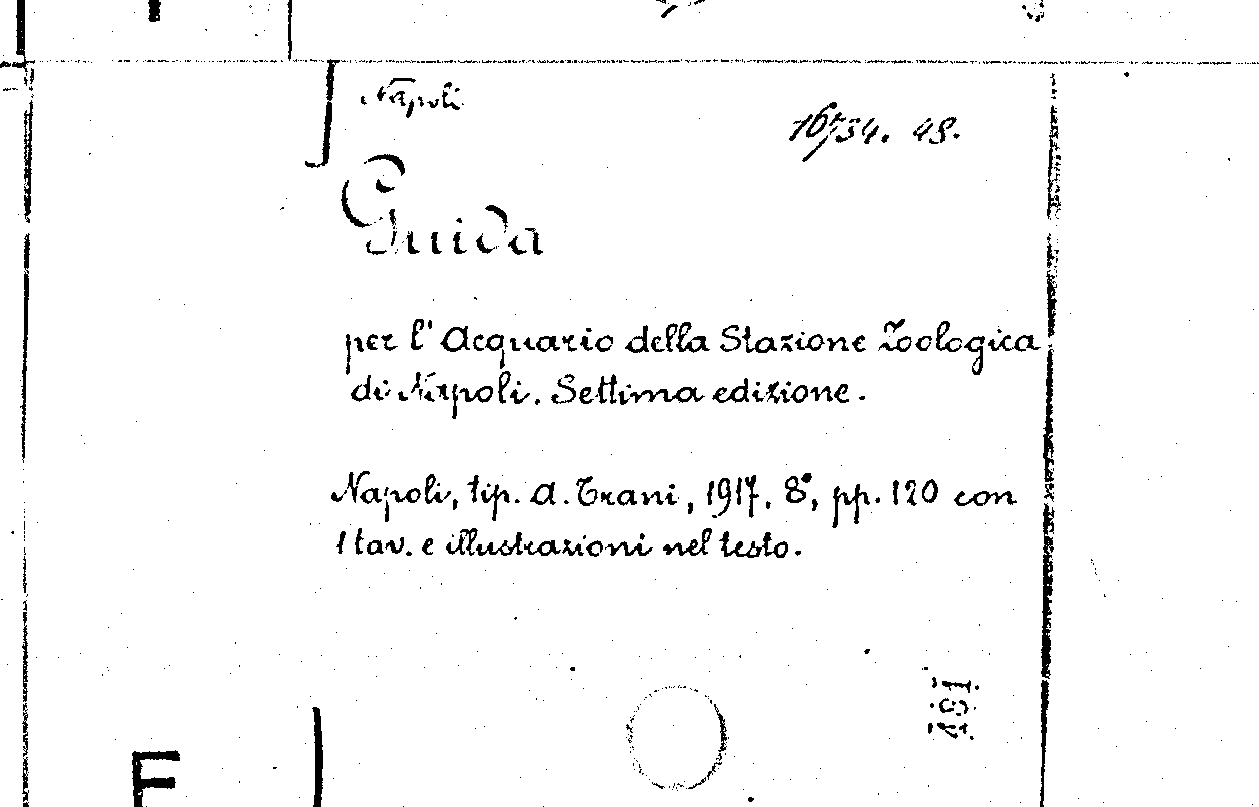 Napoli
16734. 48.
Guida
per l'Acquario della Stazione Zoologica
di Napoli. Settima edizione.
Napoli, tip. A. Trani, 1917. 8°, pp. 120 con
1 tav. e illustrazioni nel testo.
481
E